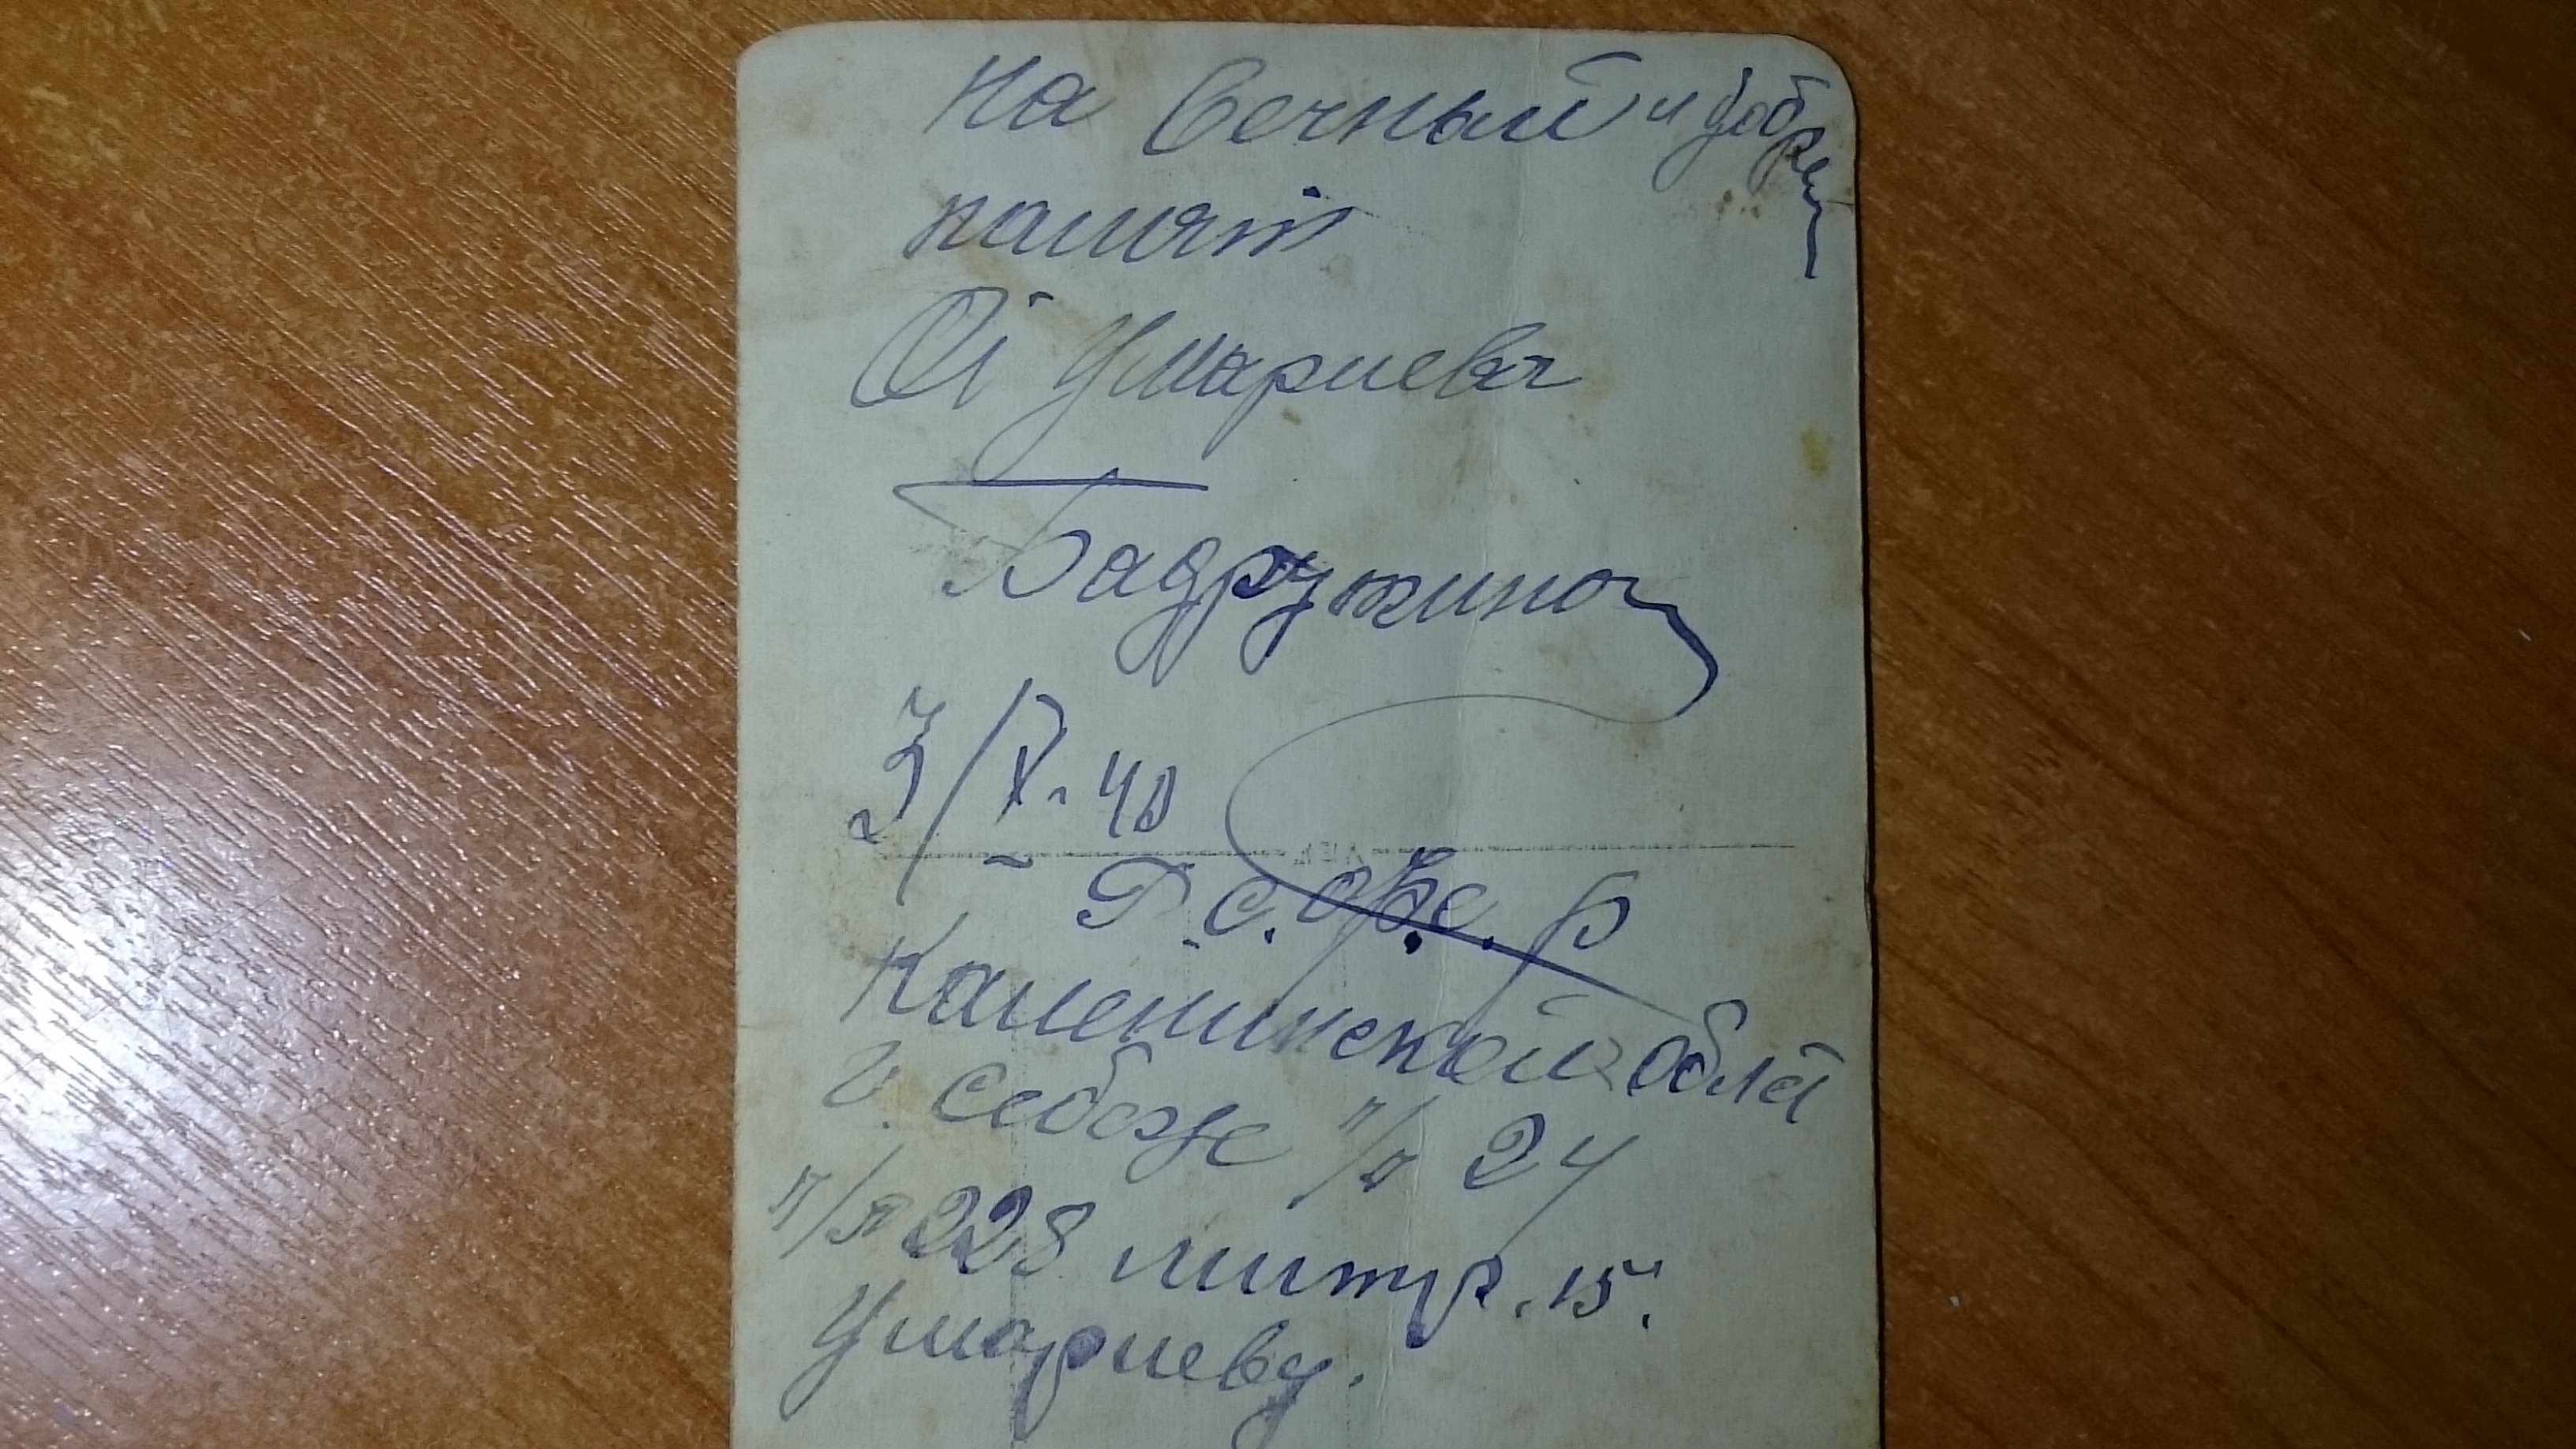 на Вечный и добрей
памят
От Умариева
Бадружина
3/X-48
Р.С.Ф.С.Р
Каленинской облст
г. Себеже п/о 24
п/я 228 литр. 15.
Умариеву.